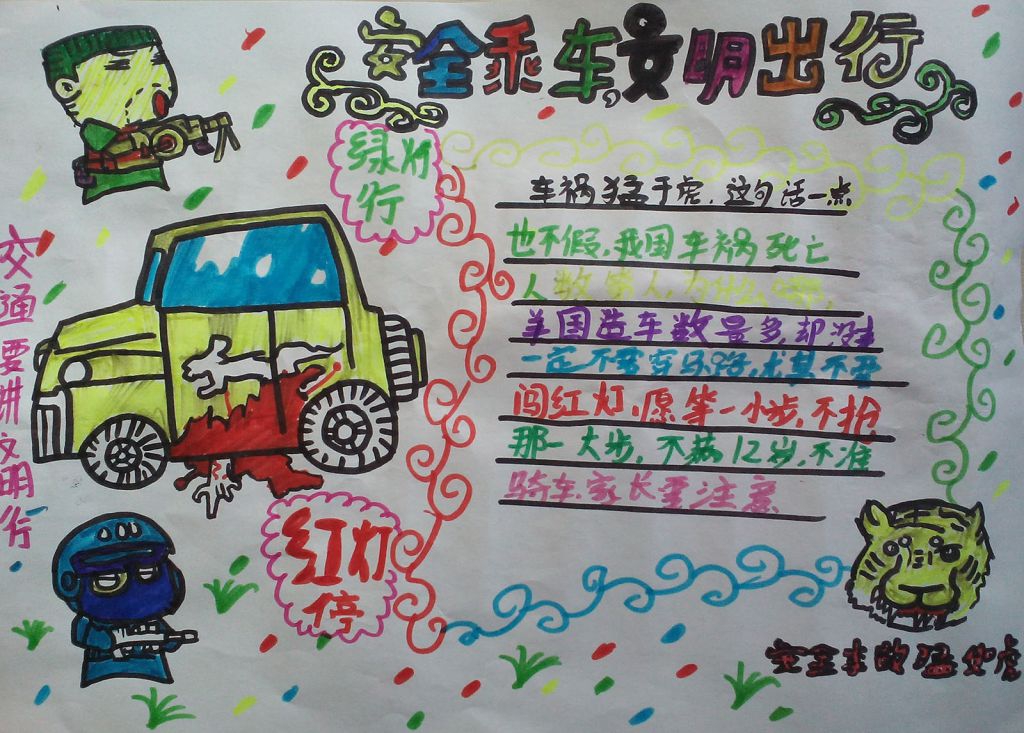 安全乘车,文明出行
绿灯
行
车祸猛于虎,这句话一点
也不假,我国车祸死亡
人数第人,为什么
美国造车数最多,却没
一定不要穿马路,尤其不要
闯红灯,愿等一小步,不抢
那一大步,不满12岁,不准
骑车,家长要注意
交通要讲文明行
红灯
停
安全车的猛如虎